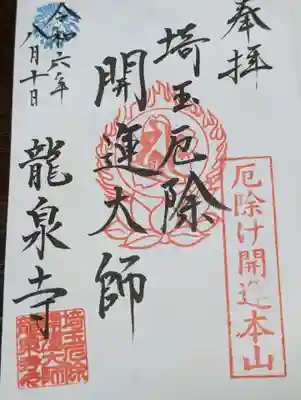 奉拝
厄除け開運本山
埼玉厄除
開運大師
龍泉寺
令和六年
八月十日
埼玉厄除
開運大師
龍泉寺